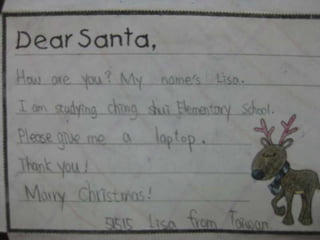 Dear Santa,
How are you? My name's Lisa.
I am studying ching shui Elementary School.
Please give me a laptop.
Thank you!
Marry Christmas!
51515 Lisa from Taiwan